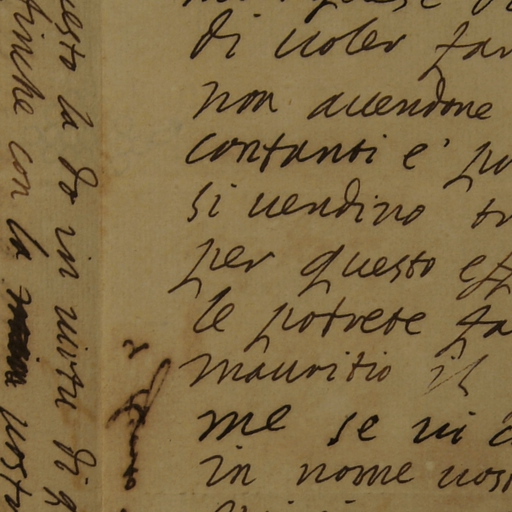 di uoler far
non auendone
contanti e' po
si uendino tr
per questo eff
le potrete fa
mauritio il
me se ui
in nome uost
uesto la do in uirtu di q
finche con la uostr